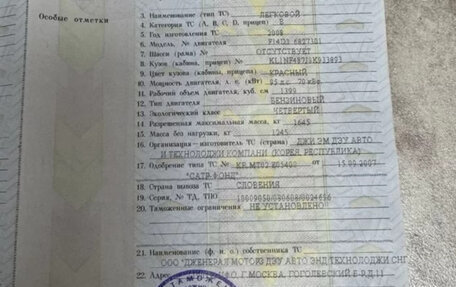 Особые отметки
3. Наименование (тип ТС) ЛЕГКОВОЙ
4. Категория ТС (А, В, С, D, прицеп) В
5. Год изготовления ТС 2008
6. Модель, № двигателя F14D3 682733I
7. Шасси (рама) № ОТСУТСТВУЕТ
8. Кузов (кабина, прицеп) №
9. Цвет кузова (кабины, прицепа) КРАСНЫЙ
10. Мощность двигателя, л. с. (кВт) 95 лс. 70 кВт.
11. Рабочий объем двигателя, куб. см 1399
12. Тип двигателя БЕНЗИНОВЫЙ
13. Экологический класс ЧЕТВЕРТЫЙ
14. Разрешенная максимальная масса, кг 1645
15. Масса без нагрузки, кг 1245
16. Организация - изготовитель ТС (страна) ДЖИ ЭМ ДЭУ АВТО
И ТЕХНОЛОДЖИ КОМПАНИ (КОРЕЯ, РЕСПУБЛИКА)
17. Одобрение типа ТС № KR.MT02.E05400 от 15.09.2007
"САТР-ФОНД"
18. Страна вывоза ТС СЛОВЕНИЯ
19. Серия, № ТД, ТПО 10009050/090608/0024656
20. Таможенные ограничения НЕ УСТАНОВЛЕНО
21. Наименование (ф. и. о.) собственника ТС
ООО "ДЖЕНЕРАЛ МОТОРЗ ДЭУ АВТО ЭНД ТЕХНОЛОДЖИ СНГ
22. Адрес Г.МОСКВА, ГОГОЛЕВСКИЙ Б-Р, Д.11
ТАМОЖЕ